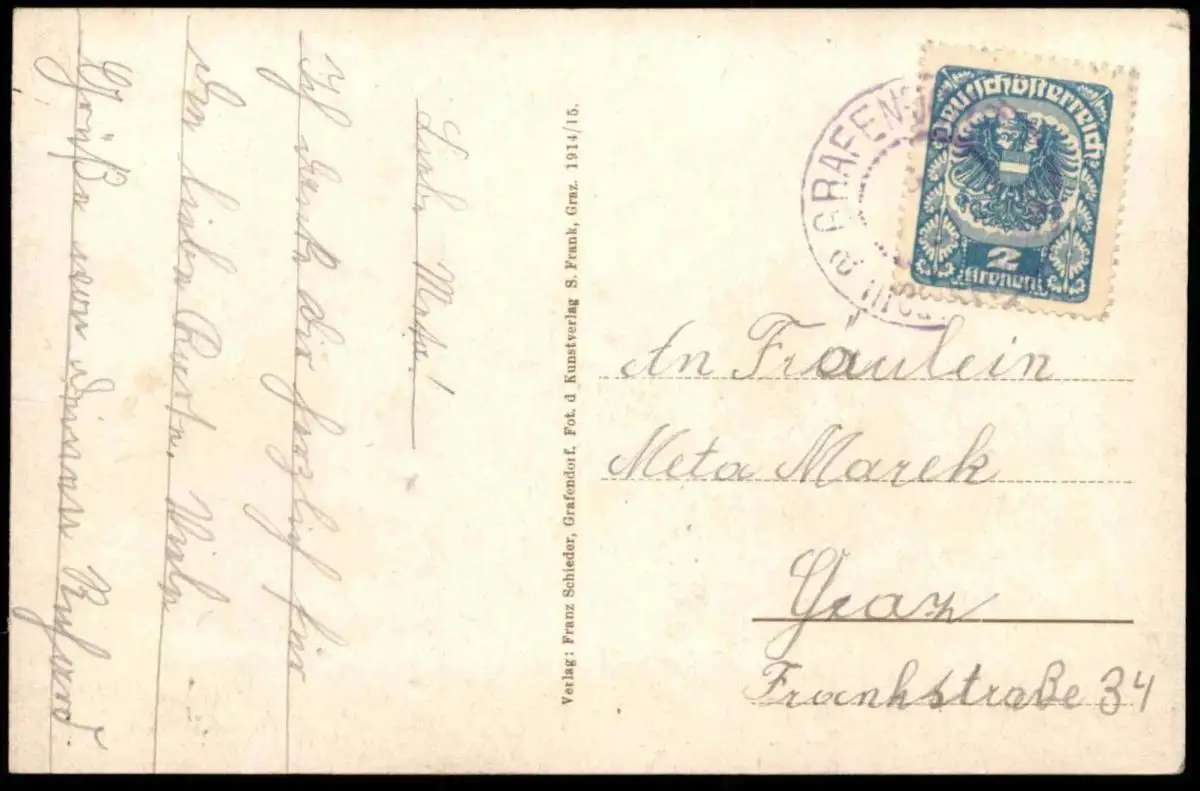 Liebe Meta!
Ich danke dir herzlich für
den lieben Karte. Viele
Grüße von deinem Richard
Verlag: Franz Schieder, Grafendorf, Fot. d Kunstverlag S. Frank, Graz. 1914/15.
GRAFEN
Deutschösterreich
2
Kronen
An Fräulein
Meta Marek
Graz
Frankstraße 34